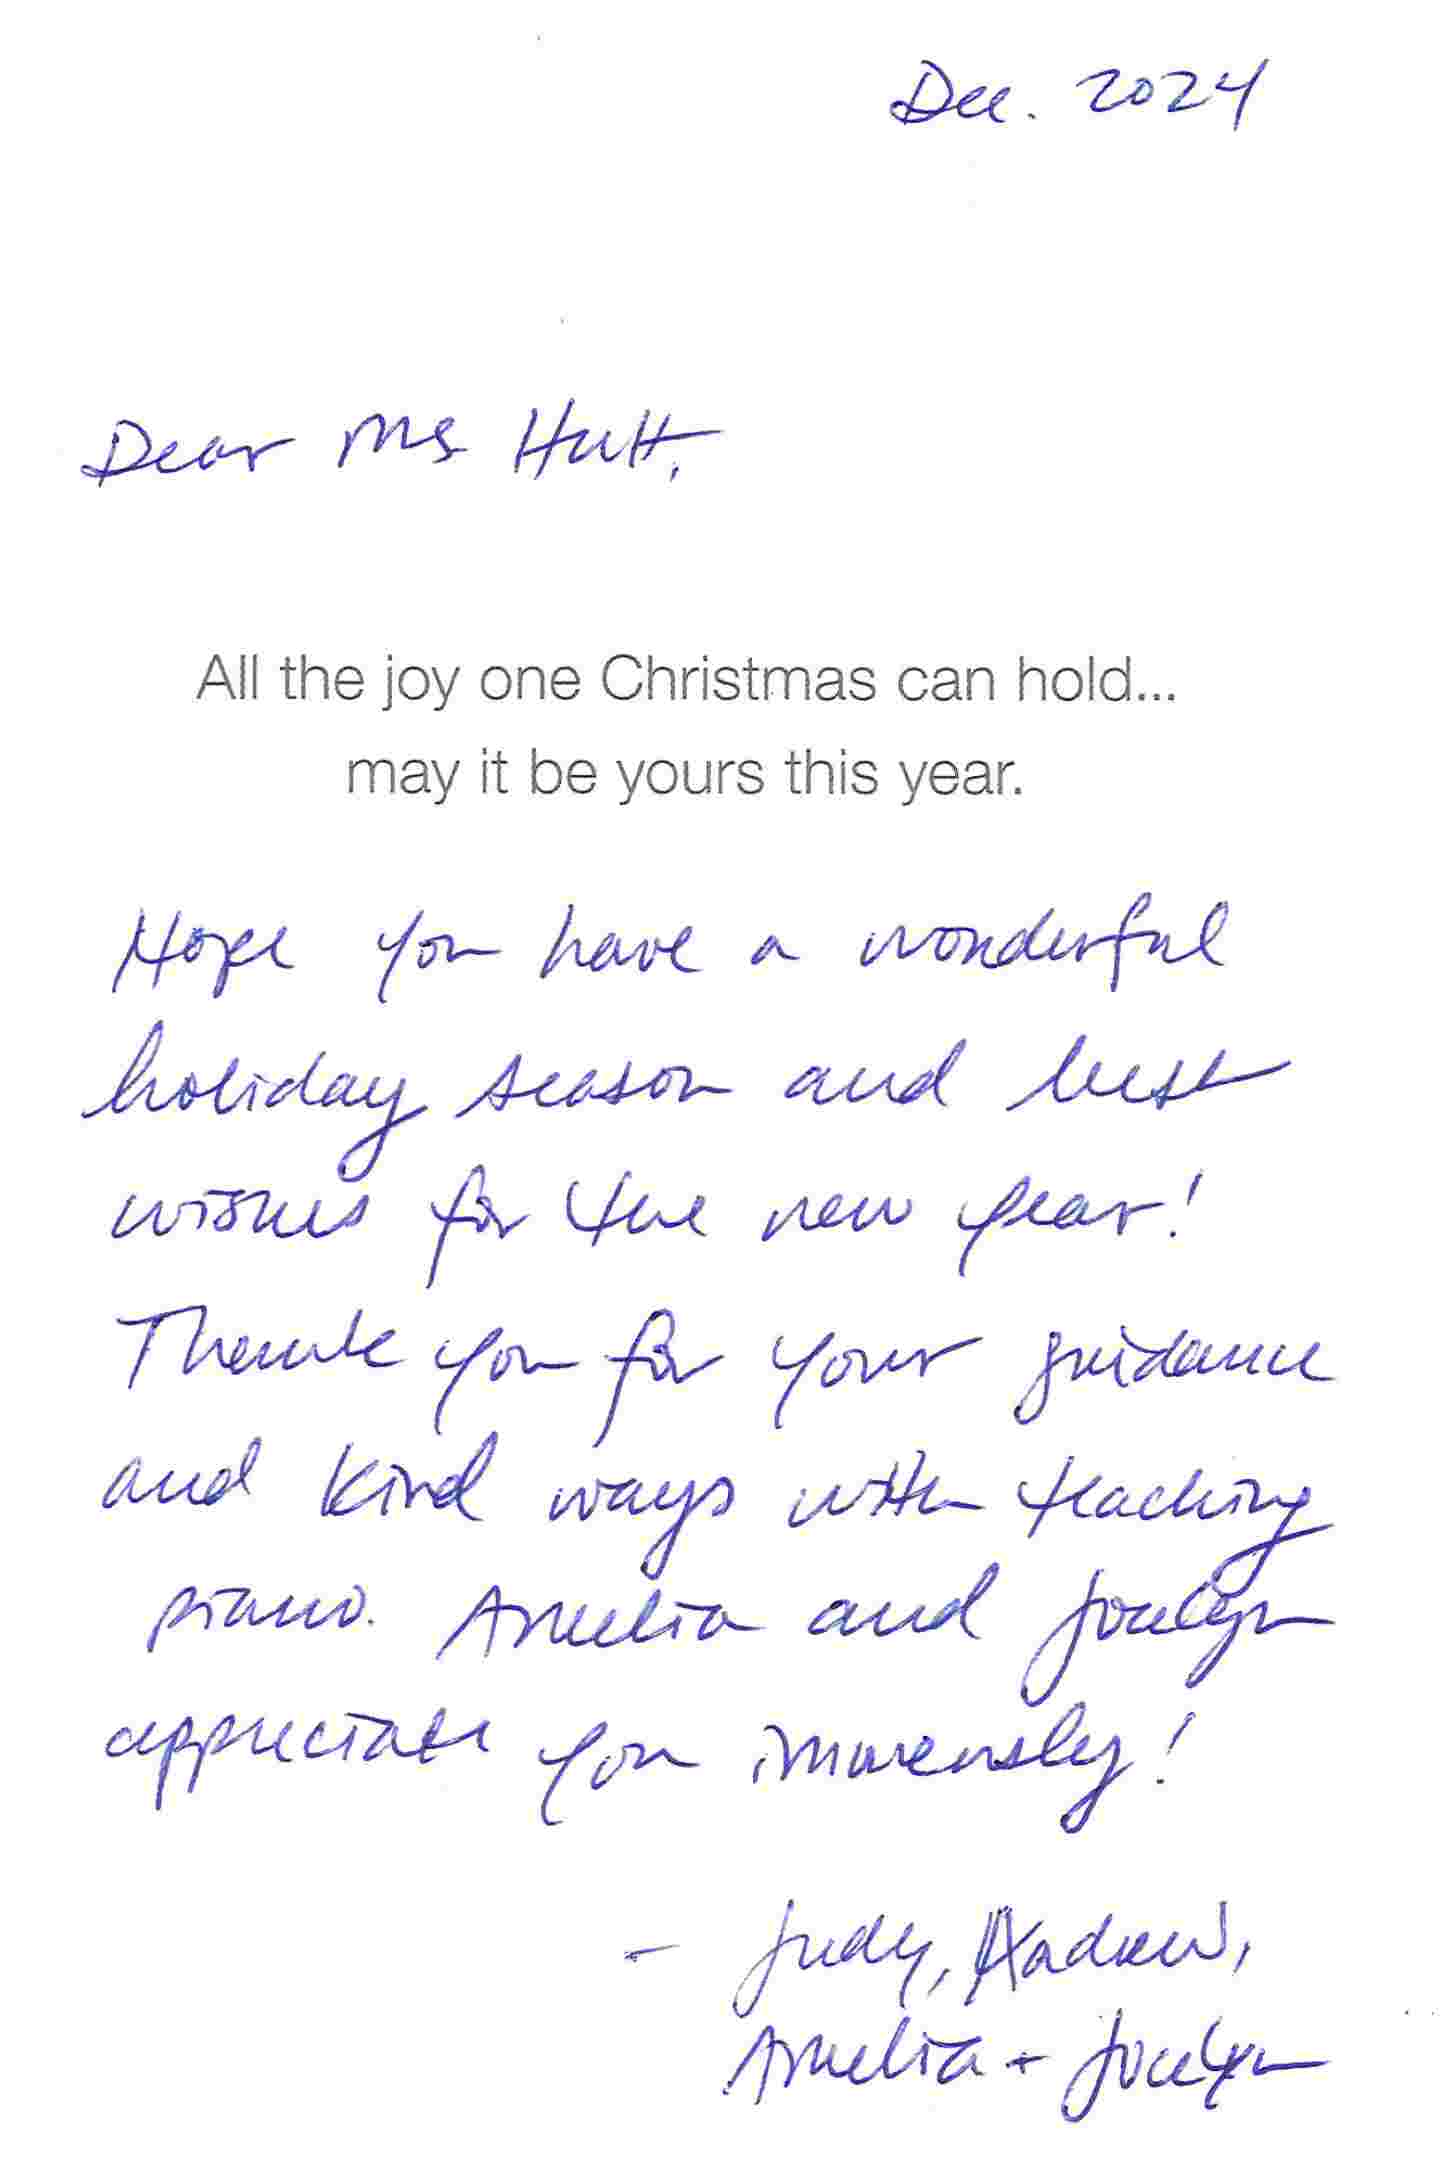 Dec. 2024
Dear Ms Hutt,
All the joy one Christmas can hold...
may it be yours this year.
Hope you have a wonderful
holiday season and best
wishes for the new year!
Thank you for your guidance
and kind ways with teaching
piano. Amelia and Jocelyn
appreciate you immensely!
- Judy, Andrew,
Amelia + Jocelyn